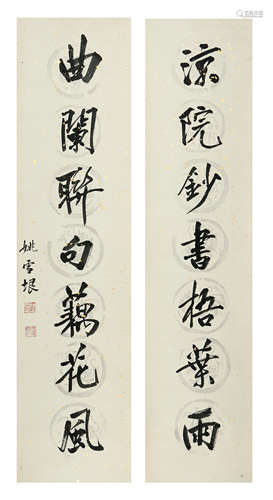 涼院鈔書梧葉雨
曲闌聯句藕花風
姚雪垠